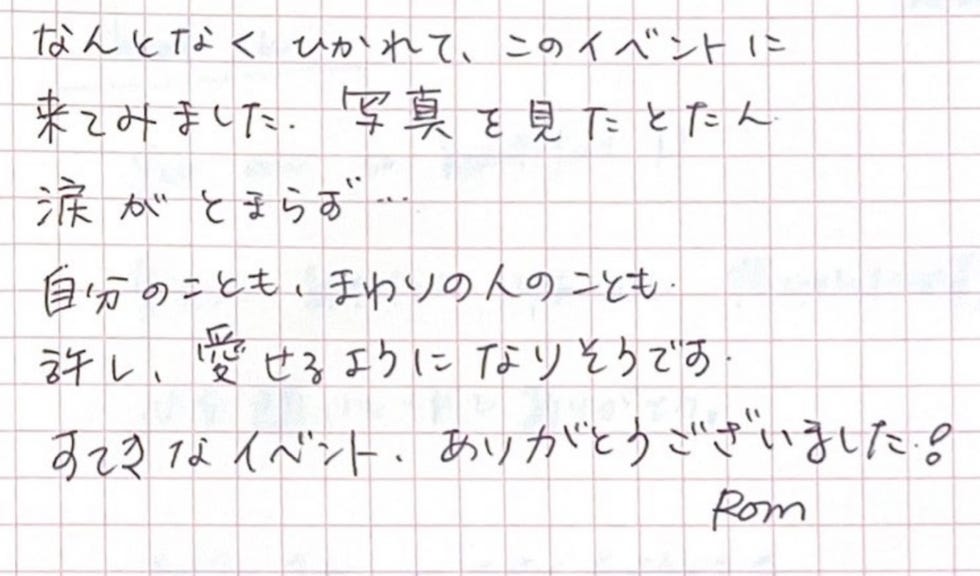 なんとなくひかれて、このイベントに
来てみました. 写真を見たとたん
涙がとまらず…
自分のことも、まわりの人のことも.
許し、愛せるようになりそうです.
すてきなイベント、ありがとうございました!
Rom